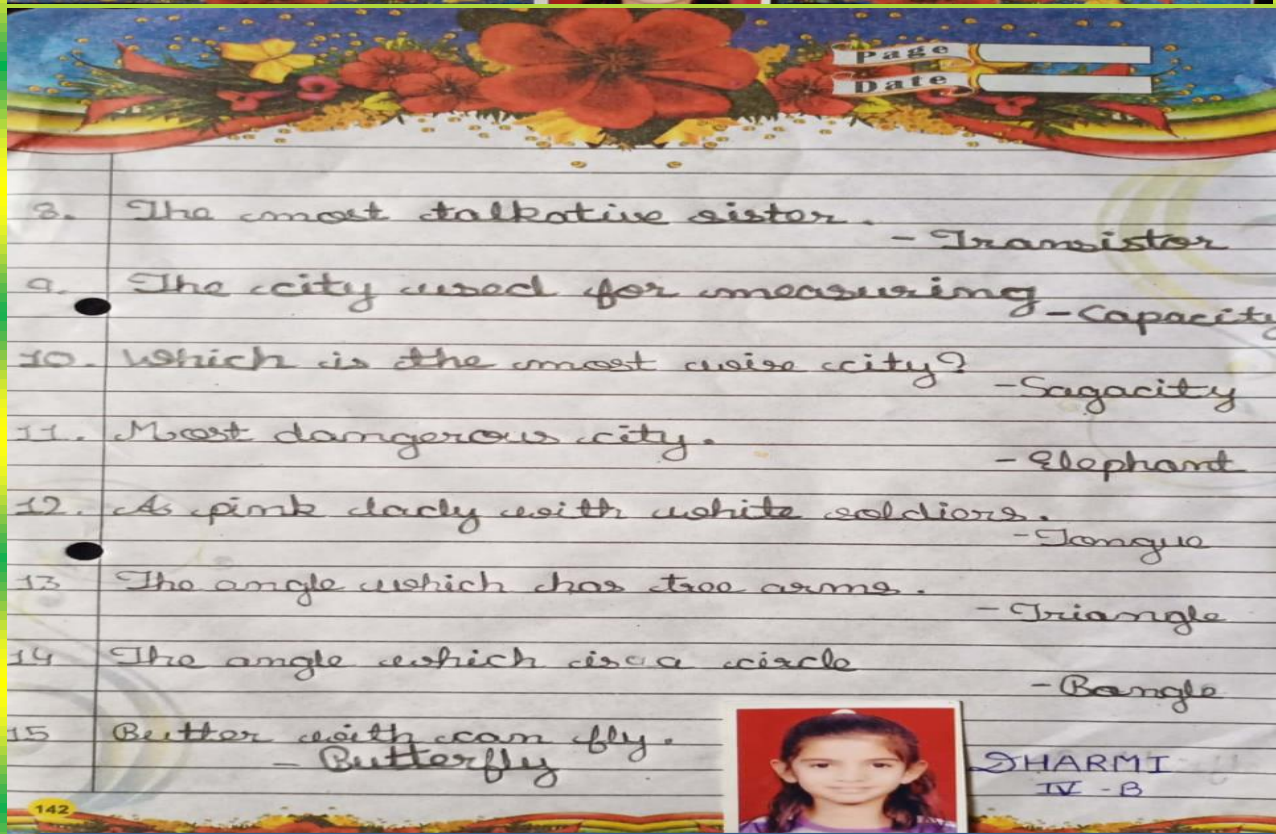 Page
Date
8. The most talkative sister.
- Transistor
9. The city used for measuring
- Capacity
10. Which is the most wise city?
- Sagacity
11. Most dangerous city.
- Elephant
12. As pink lady with white soldiers.
- Tongue
13 The angle which has tree arms.
- Triangle
14 The angle which is a circle
- Bangle
15 Butter with can fly.
- Butterfly
DHARMI
IV - B
142